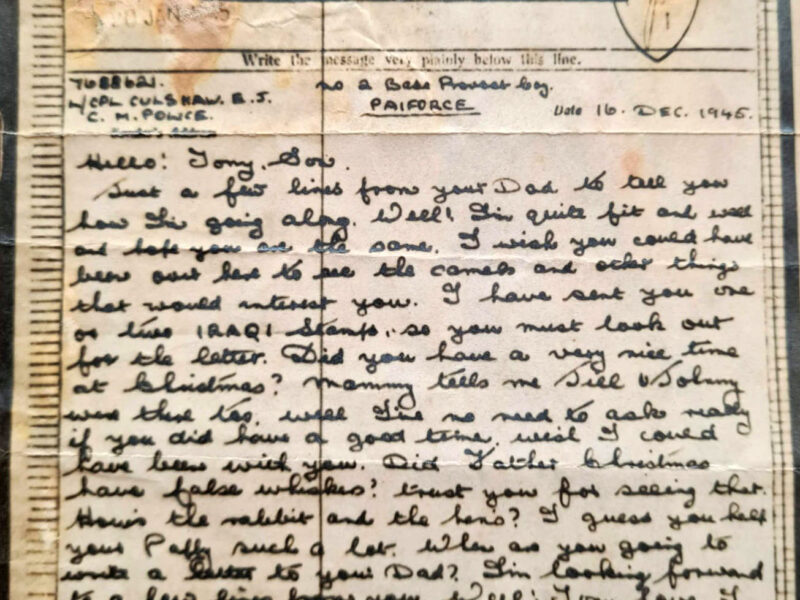 20 JAN
1
Write the message very plainly below this line.
7688621. no 2 Base Provost Coy.
L/CPL CULSHAW. E. J. PAIFORCE
C. M. POLICE. Date 16. DEC. 1945.
Hello! Tony. Son.
Just a few lines from your Dad to tell you
how I'm going along. Well! I'm quite fit and well
and hope you are the same. I wish you could have
been over here to see the camels and other things
that would interest you. I have sent you one
or two IRAQI Stamps, so you must look out
for the letter. Did you have a very nice time
at Christmas? Mammy tells me Jill & Johnny
were there too, well I've no need to ask really
if you did have a good time, wish I could
have been with you. Did Father Christmas
have false whiskers? trust you for seeing that.
How's the rabbit and the hens? I guess you help
your such a lot. When are you going to
write a letter to your Dad? I'm looking forward
to a few lines from you. Well! Tony